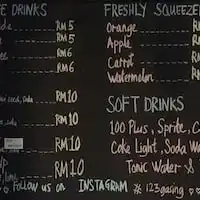 DRINKS
RM 5
RM 5
RM 6
RM 6
RM 10
RM 10
RM 10
RM 10
FRESHLY SQUEEZE
Orange RM
Apple
Carrot
Watermelon RM
SOFT DRINKS
100 Plus, Sprite, C
Coke Light, Soda W
Tonic Water
Follow us on INSTAGRAM * 123gasing